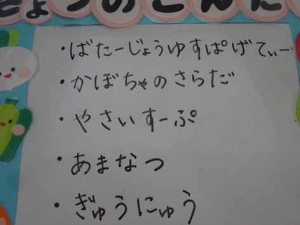 きょうのこんだ
・ばたーじょうゆすぱげてぃー
・かぼちゃのさらだ
・やさいすーぷ
・あまなつ
・ぎゅうにゅう